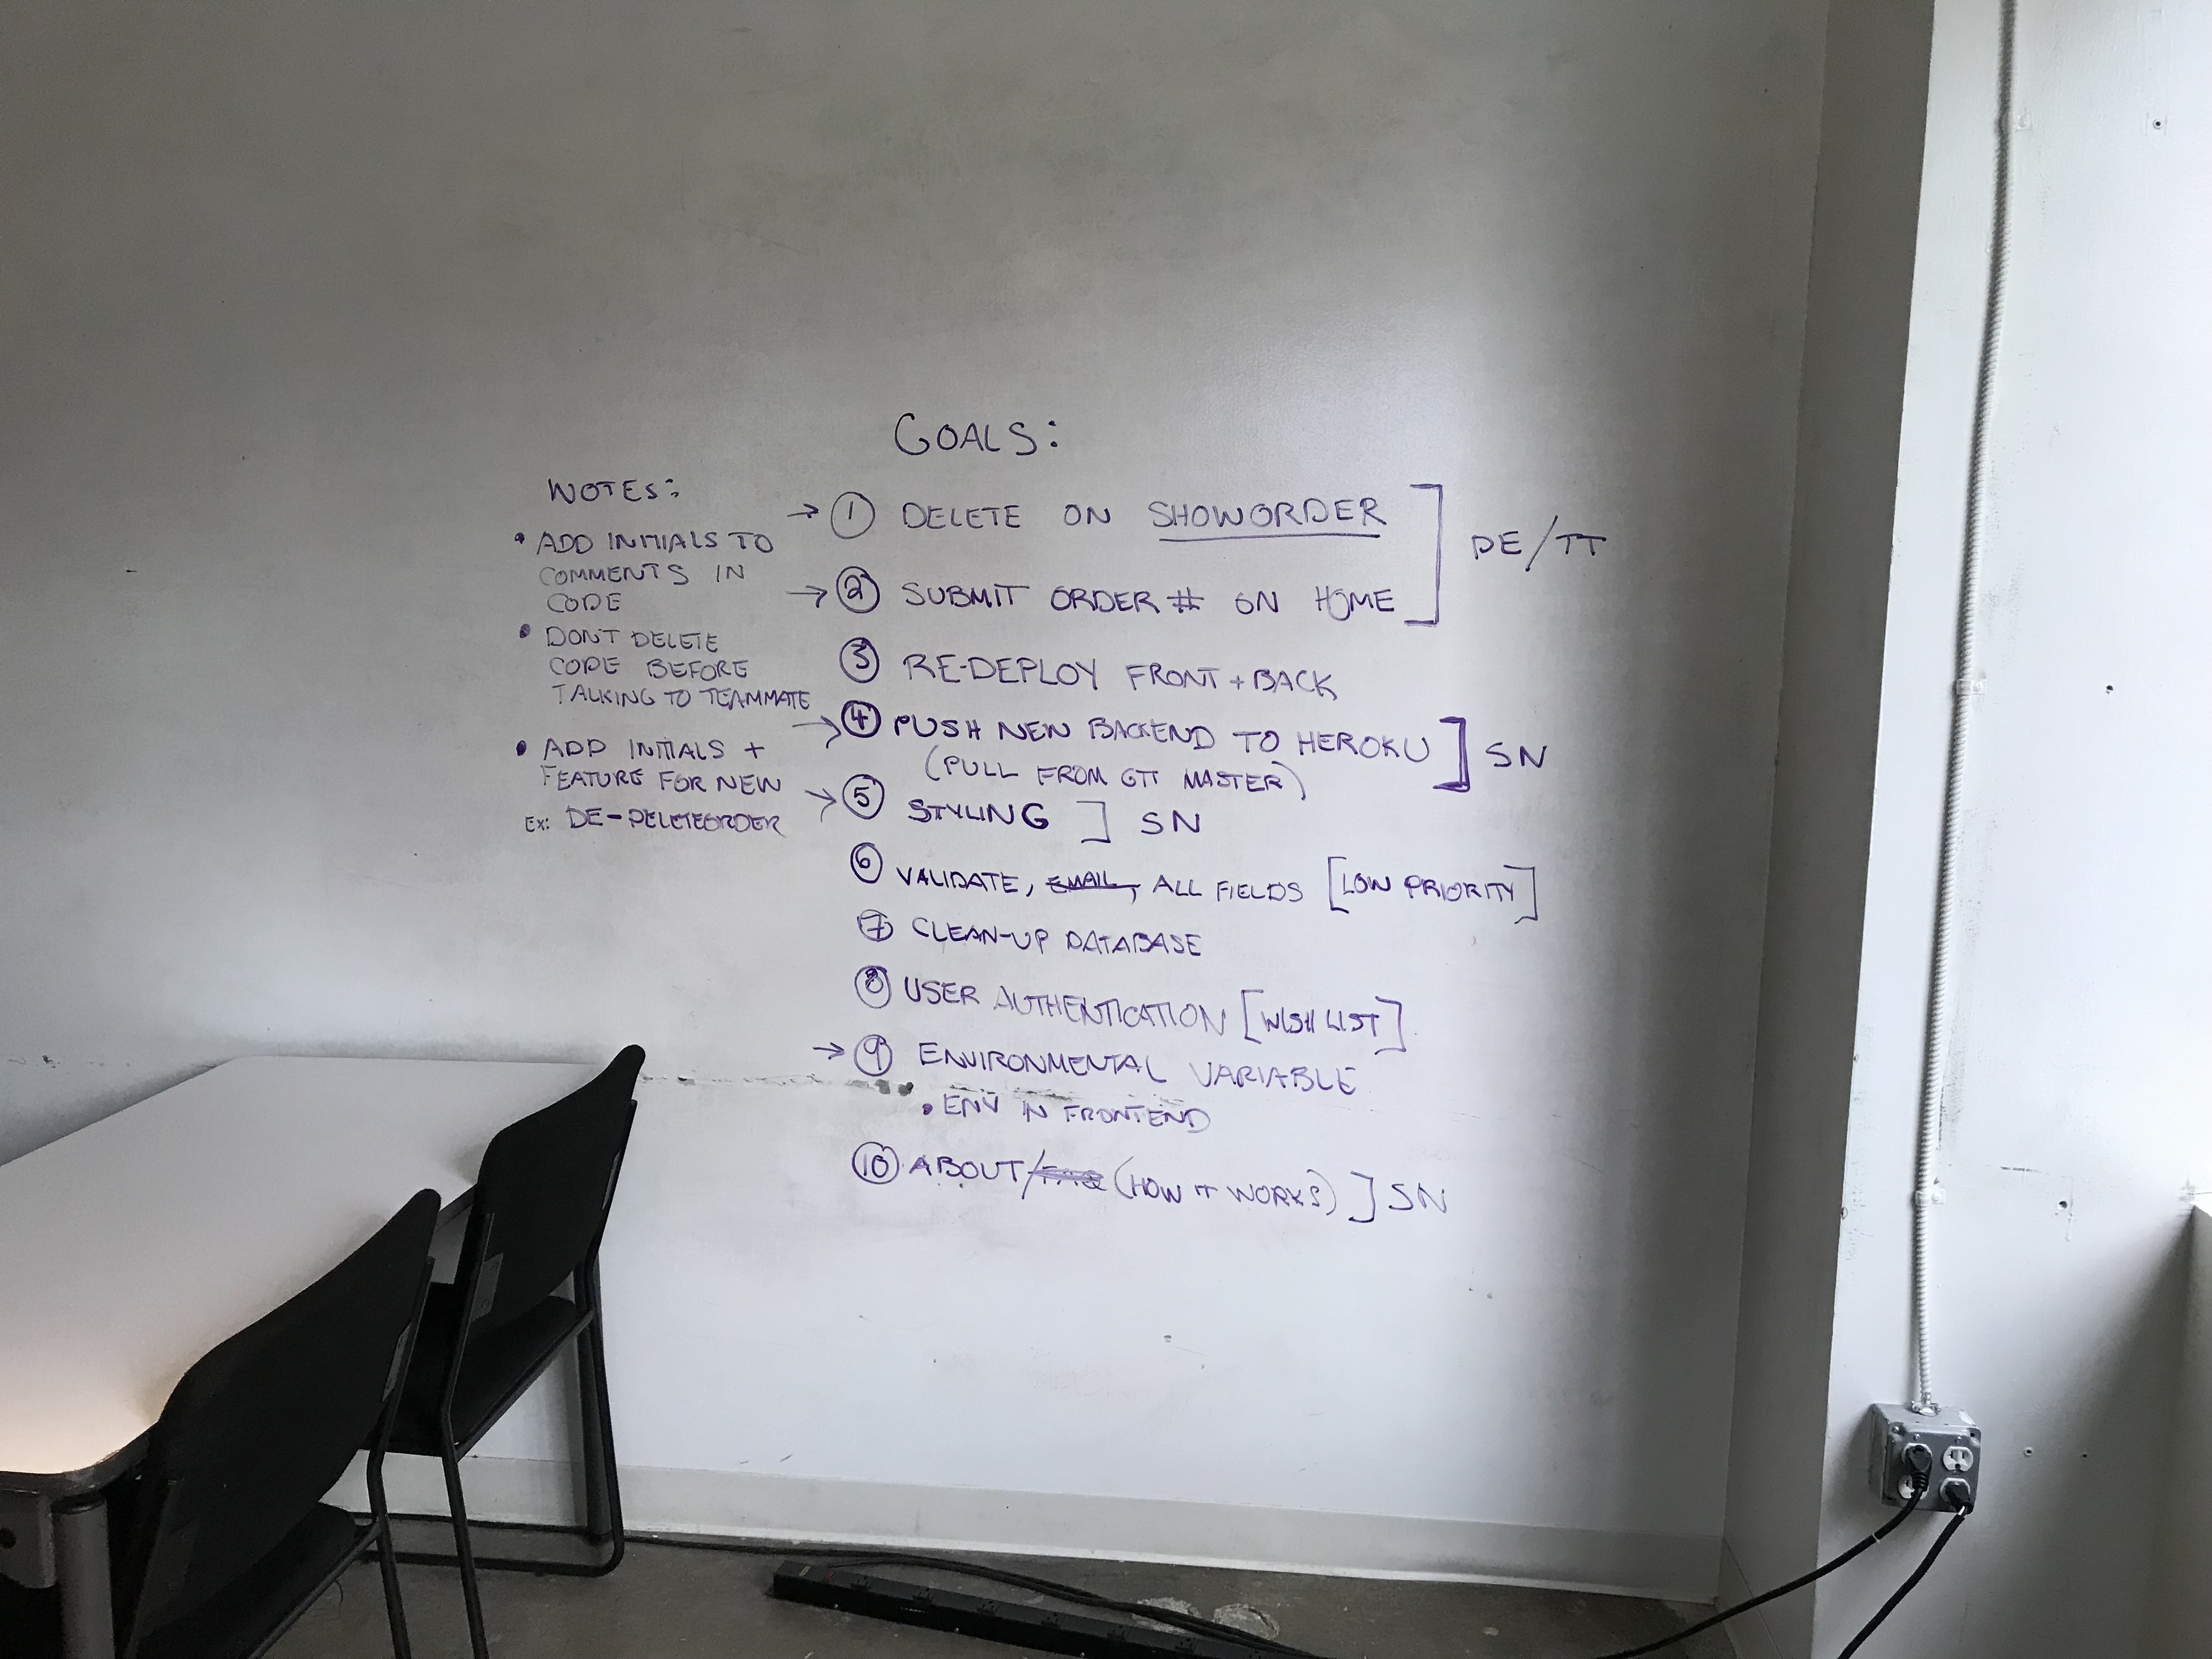 GOALS:
NOTES:
• ADD INITIALS TO
COMMENTS IN
CODE
• DONT DELETE
CODE BEFORE
TALKING TO TEAMMATE
• ADD INITIALS +
FEATURE FOR NEW
EX: DE-DELETEORDER
→ 1 DELETE ON SHOWORDER ] DE/TT
→ 2 SUBMIT ORDER # ON HOME
3 RE-DEPLOY FRONT + BACK
→ 4 PUSH NEW BACKEND TO HEROKU ] SN
(PULL FROM GTT MASTER)
→ 5 STYLING ] SN
6 VALIDATE, EMAIL, ALL FIELDS [LOW PRIORITY]
7 CLEAN-UP DATABASE
8 USER AUTHENTICATION [WISH LIST]
→ 9 ENVIRONMENTAL VARIABLE
• ENV IN FRONTEND
10 ABOUT/FAQ (HOW IT WORKS) ] SN